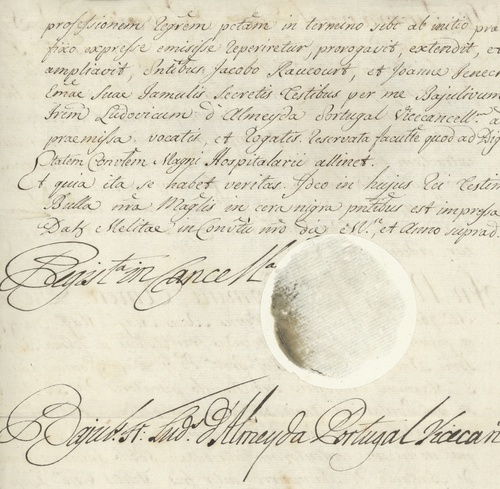 professionem Regrem petam in termino sibi ab initio prae
fixo expresse emisisse reperiretur, prorogavit, extendit, et
ampliavit, Pntibus Jacobo Raucourt, et Joanne
Emae Suae Famulis Secretis Testibus per me Bajulivum
Frem Ludovicum d'Almeyda Portugal Vicecancell.m a
praemissa vocatis, et rogatis reservata facultte quod ad Dig
tatem Convtem Magni Hospitalarii attinet.
Et quia ita se habet veritas. Ideo in hujus rei Testim
Bulla nra Maglis in cera nigra pntibus est impressa
Dat. Melitae in Conventu nro die Ms. et Anno suprad.
Regist.ta in Cancell.a
Bajul. Fr. Lud.s d'Almeyda Portugal Vicecan